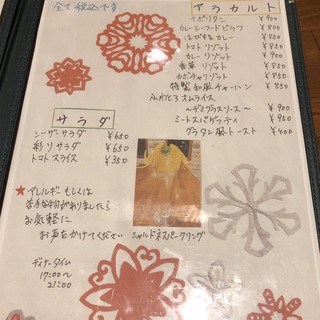 全て税込です
アラカルト
ナポリタン ¥900
カレーシーフードピラフ ¥800
カレー ¥850
トマトリゾット ¥850
カレーリゾット ¥900
香草リゾット ¥850
カボチャリゾット ¥850
特製和風チャーハン
ふわとろオムライス
〜デミグラスソース〜 ¥900
ミートスパゲッティ ¥950
グラタン風トースト ¥400
サラダ
シーザーサラダ ¥650
彩りサラダ ¥650
トマトスライス ¥350
★アレルギーもしくは
苦手な食材がありましたら
お気軽に
お声をかけてください
シャルドネスパークリング
ディナータイム
17:00〜
21:00